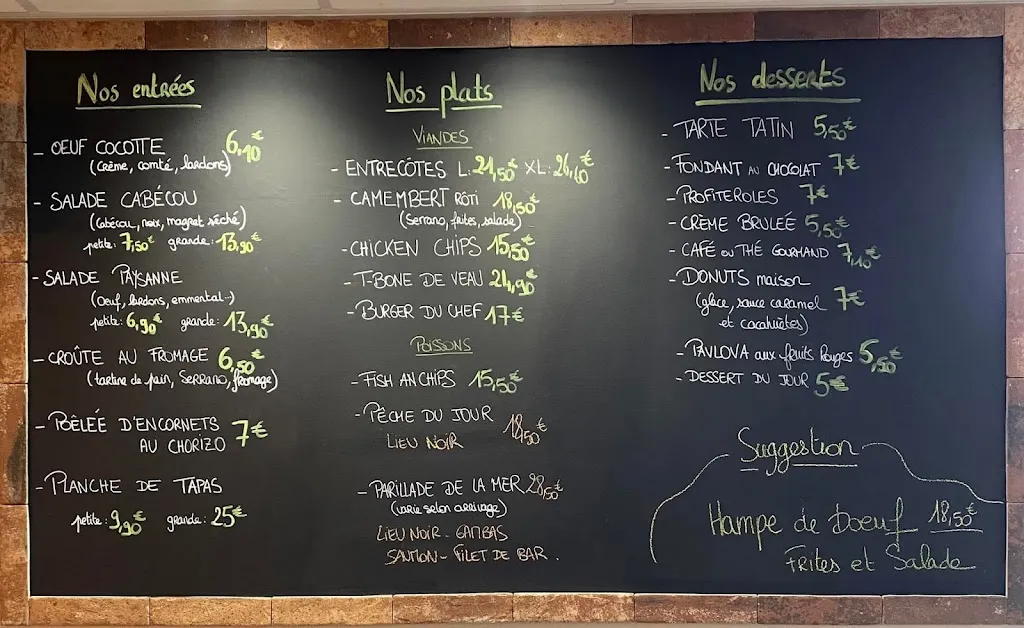 Nos entrées
- OEUF COCOTTE 6,10€
(crème, comté, lardons)
- SALADE CABÉCOU
(Cabécou, noix, magret séché)
petite: 7,50€ grande: 13,90€
- SALADE PAYSANNE
(Oeuf, lardons, emmental..)
petite: 6,90€ grande: 13,90€
- CROÛTE AU FROMAGE 6,50€
(tartine de pain, SERRANO, fromage)
- POÊLÉE D'ENCORNETS
AU CHORIZO 7€
- PLANCHE DE TAPAS
petite: 9,90€ grande: 25€
Nos plats
VIANDES
- ENTRECÔTES L: 21,50€ XL: 26,10€
- CAMEMBERT RÔTI 18,50€
(Serrano, frites, salade)
- CHICKEN CHIPS 15,50€
- T-BONE DE VEAU 21,90€
- BURGER DU CHEF 17€
POISSONS
- FISH AN CHIPS 15,50€
- PÊCHE DU JOUR 18,50€
LIEU NOIR
- PARILLADE DE LA MER 28,50€
(varie selon arrivage)
LIEU NOIR - GAMBAS
- FILET DE BAR.
Nos desserts
- TARTE TATIN 5,50€
- FONDANT AU CHOCOLAT 7€
- PROFITEROLES 7€
- CRÈME BRULEÉ 5,50€
- CAFÉ OU THÉ GOURMAND 7,10€
- DONUTS maison
(glace, sauce caramel 7€
et cacahuètes)
- PAVLOVA aux fruits Rouges 5,50€
- DESSERT DU JOUR 5€
Suggestion
Hampe de Boeuf 18,50€
FRites et Salade